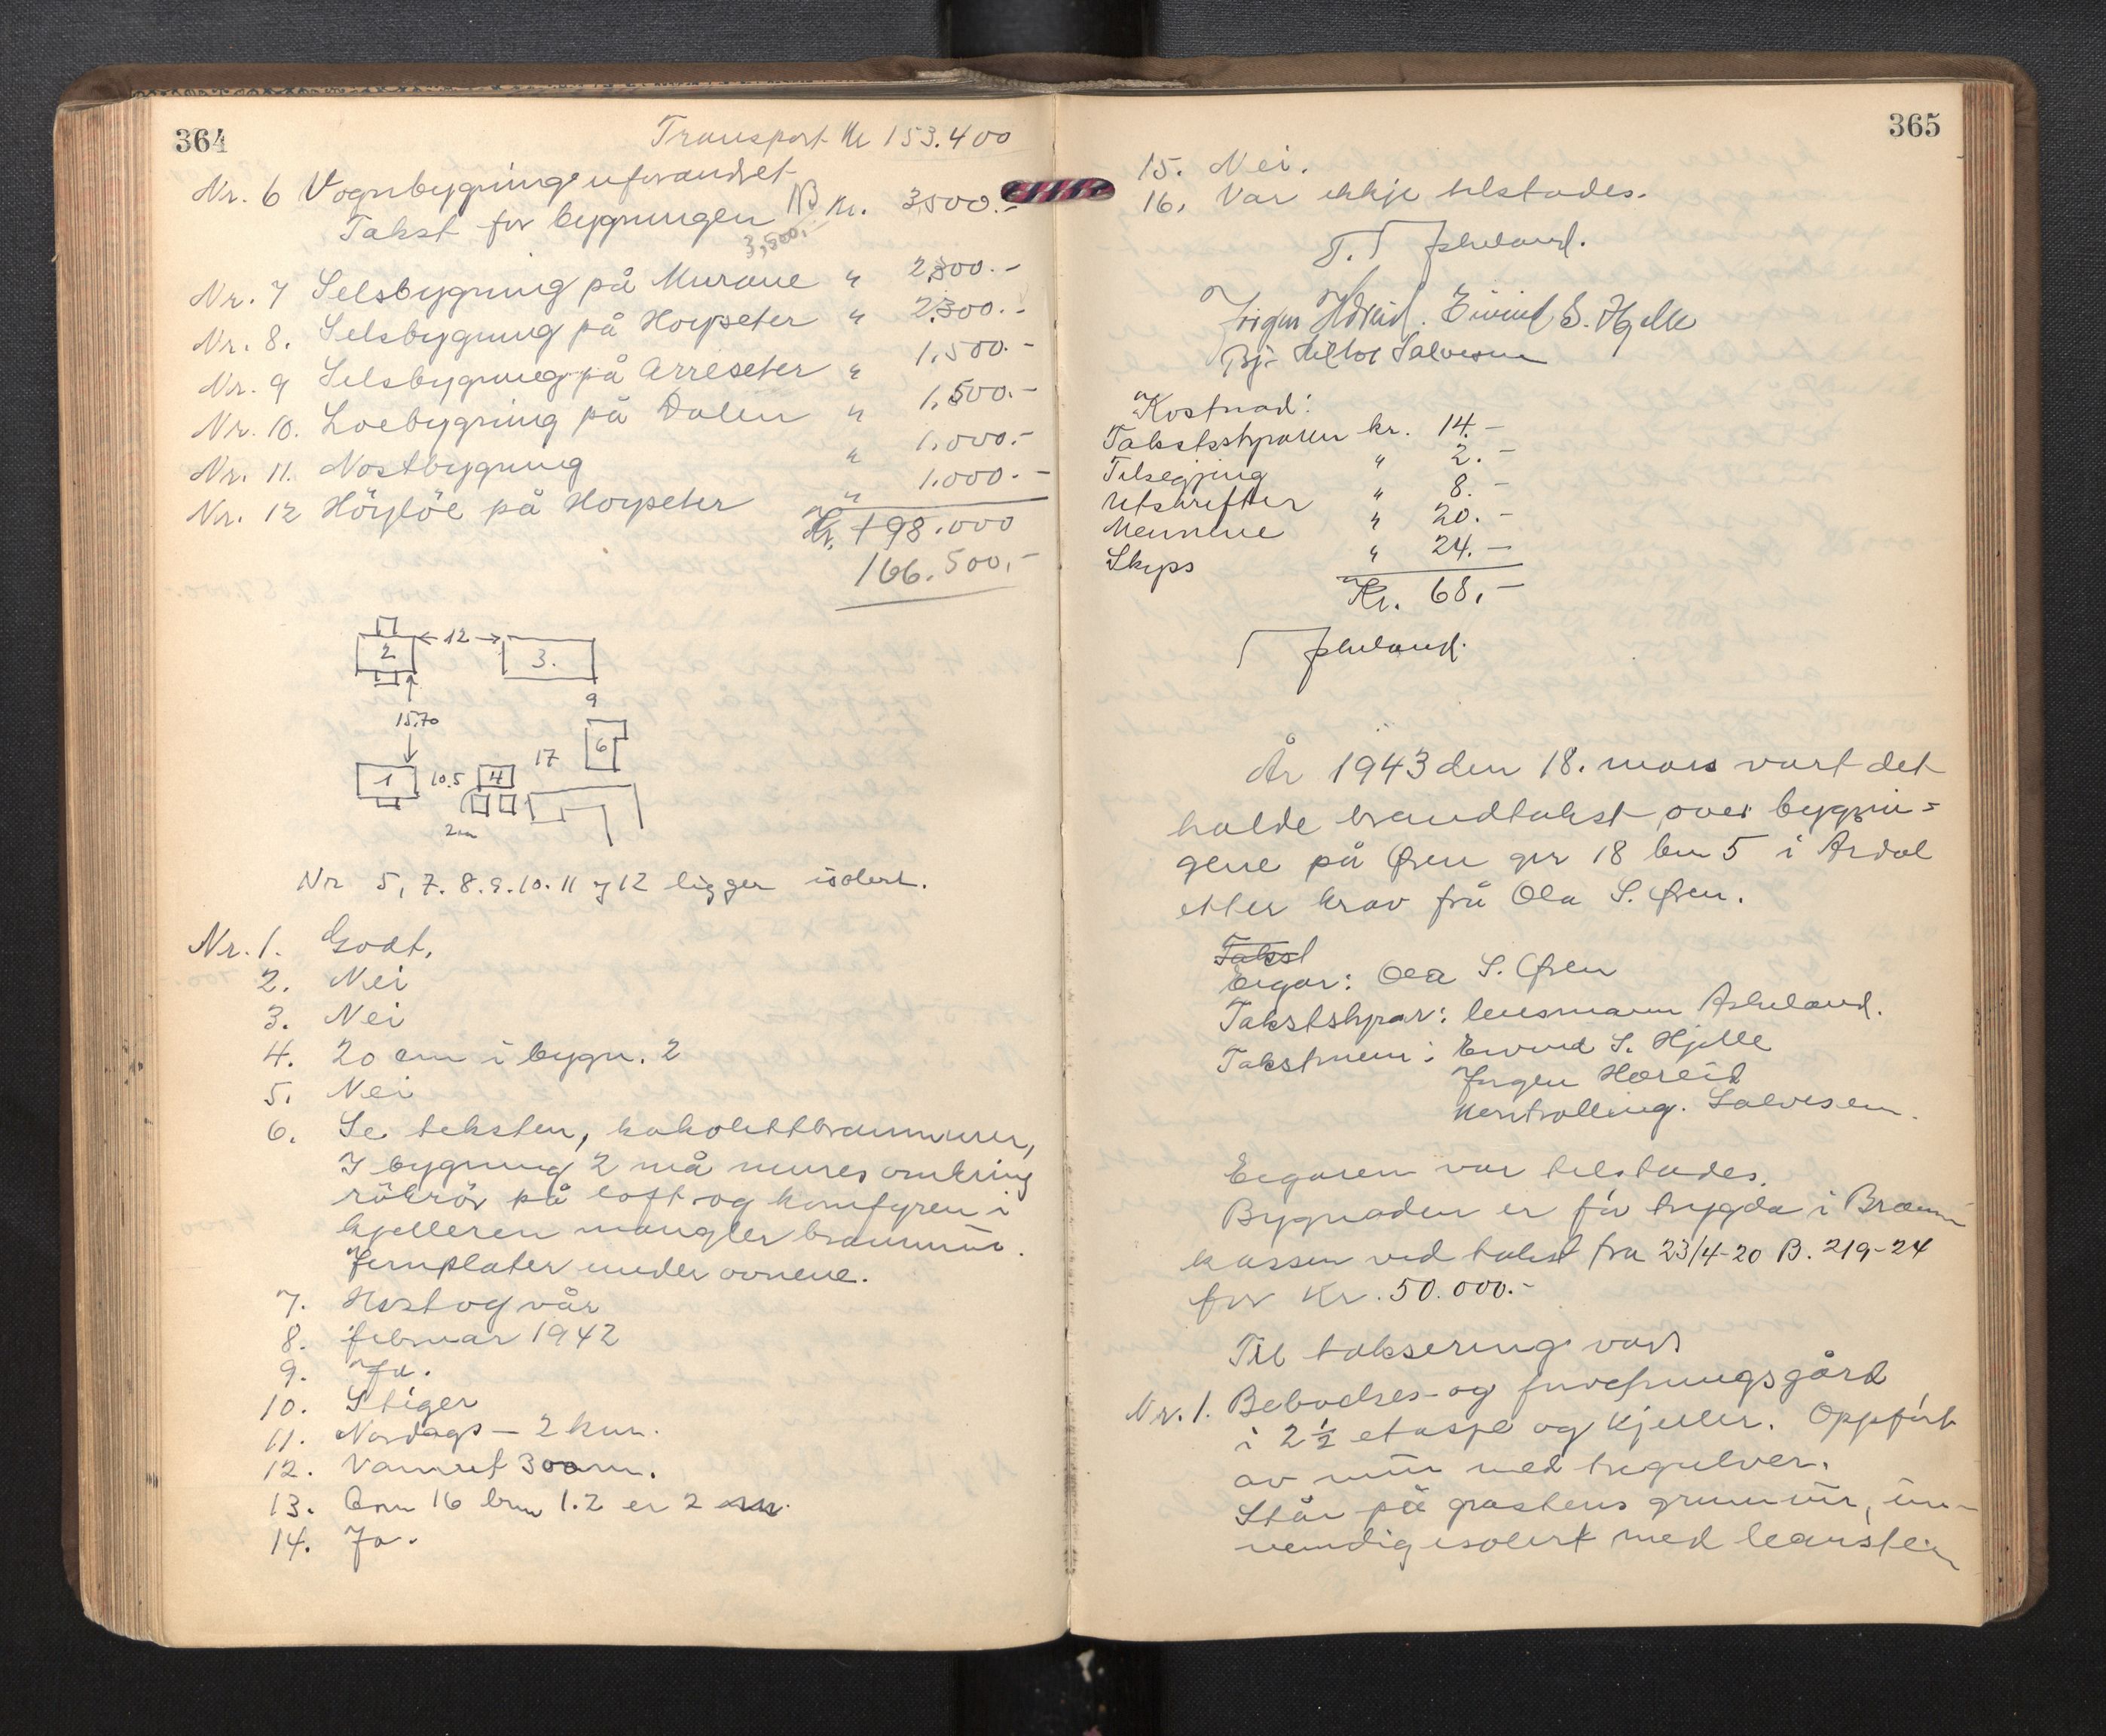 364
Transport kr 153.400
Nr. 6 Vognbygning uforandret
Takst for bygningen NB kr. 3500.-
3,500,-
Nr. 7 Selsbygning på Murane " 2,300.-
Nr. 8. Selsbygning på Hovseter " 2.300.-
Nr. 9 Selsbygning på Arreseter " 1,500.-
Nr. 10. Loebygning på Dalen " 1,500.-
Nr. 11. Nostbygning " 1.000.-
Nr. 12 Höyløe på Hovseter " 1.000.-
Kr. 198.000
166.500,-
2 ← 12 → 3.
9
15.70
6
17
1 10.5 4
2m
Nr 5, 7. 8. 9. 10. 11 og 12 ligger isolert.
Nr. 1. Godt.
2. Nei
3. Nei
4. 20 cm i bygn. 2
5. Nei
6. Se teksten, kakelittbrannmurer,
I bygning 2 må mures omkring
rökrör på loft og komfyren i
kjelleren mangler brannmur.
Jernplater under ovnene.
7. Høst og vår
8. februar 1942
9. Ja.
10. Stiger
11. Nordags - 2 km.
12. Vannet 300 m.
13. Gnr 16 brn 1.2 er 2
14. Ja.
365
15. Nei.
16. Var ikkje tilstades.
T. T Askeland.
Jørgen Hæreid. Eivind S. Hjelle
Salvesen
Kostnad:
Takstskyparen kr. 14.-
Tilsegjing " 2.-
Utskrifter " 8.-
Mennene " 20.-
Skyss " 24.-
Kr. 68,-
T Askeland.
År 1943 den 18. mars vart det
halde brandtakst over bygnin=
gene på Øren gnr 18 bnr 5 i Årdal
etter krav frå Ola S. Øren.
Takst
Eigar: Ola S. Øren
Takstskypar: lensmann Askeland.
Takstmenn: Eivind S. Hjelle
Jørgen Hæreid
Kontrolling. Salvesen.
Eigaren var tilstades.
Bygnaden er för trygda i Brann
kassen ved takst fra 23/4-20 B. 219-24
for Kr. 50.000.-
Til taksering vart
Nr. 1. Beboelses- og forretningsgård
i 2 1/2 etasje og kjeller. Oppfört
av mur med tregulver.
Står på gråstens grunnmur, inn-
vendig isolert med leansten